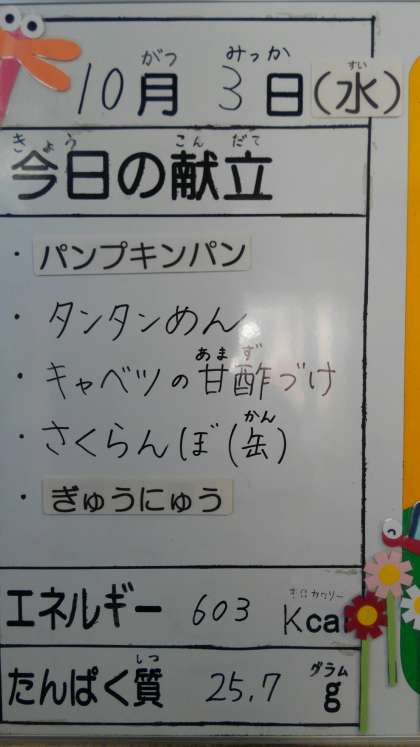 がつ みっか すい
10月 3日(水)
きょう こんだて
今日の献立
・パンプキンパン
・タンタンめん
あまず
・キャベツの甘酢づけ
かん
・さくらんぼ(缶)
・ぎゅうにゅう
キロカロリー
エネルギー 603 Kcal
しつ グラム
たんぱく質 25.7 g